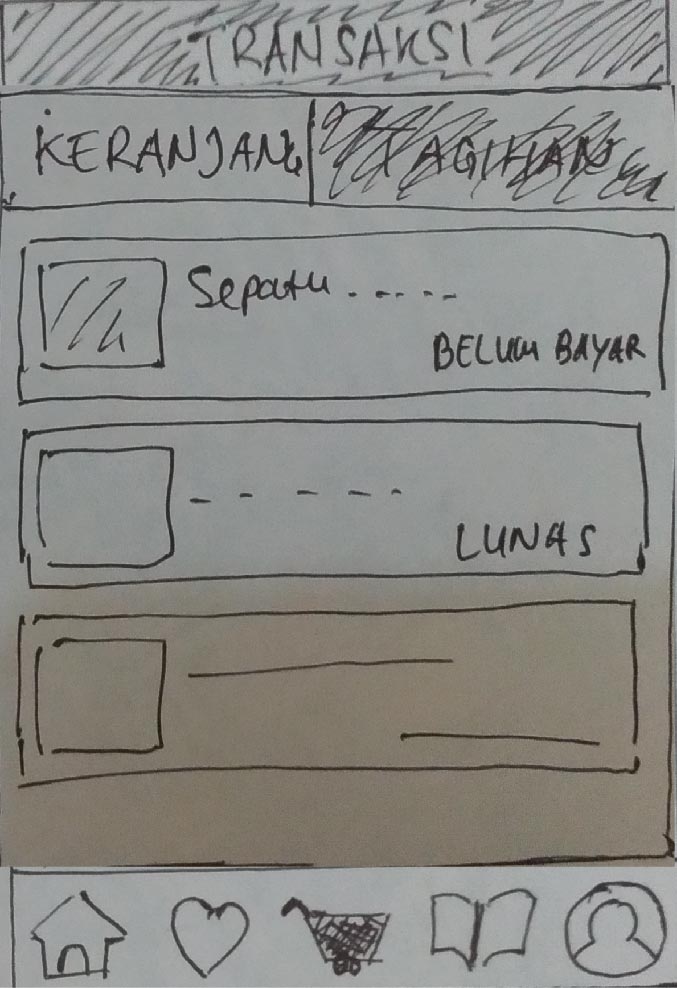 TRANSAKSI
KERANJANG TAGIHAN
Sepatu -----
BELUM BAYAR
- - - - -
LUNAS